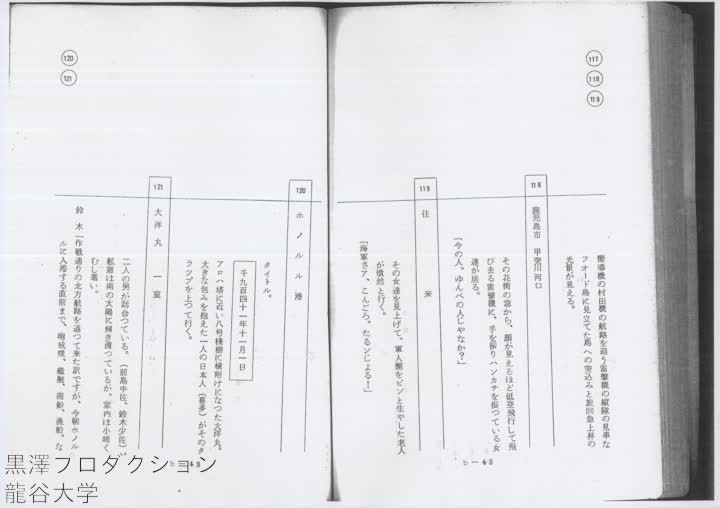 117
118
119
嚮導機の村田機の航路を追う雷撃機の縦隊の見事な
フオード島に見立てた島への突込みと旋回急上昇の
光景が見える。
118 鹿児島市 甲突川河口
その花街の窓から、顔が見えるほど低空飛行して飛
び去る雷撃機に、手を振りハンカチを振つている女
達が居る。
「今の人、ゆんべの人じやなか?」
119 往来
その女達を見上げて、軍人髭をピンと生やした老人
が憤然と行く。
「海軍さア、こんごろ、たるンじよる!」
b—42
120
121
120 ホノルル港
タイトル。
千九百四十一年十一月一日
アロハ塔に近い八号棧橋に横附けになつた大洋丸。
大きな包みを抱えた一人の日本人(喜多)がそのタ
ラツプを上つて行く。
121 大洋丸 一室
二人の男が話合つている。(前島中佐、鈴木少佐)
舷窓は南の太陽に輝き渡つているが、室内は小暗く
むし暑い。
鈴木「作戦通りの北方航路を通つて来た訳ですが、今朝ホノル
ルに入港する直前まで、哨戒機、艦艇、商船、漁船、な
b—43
黒澤プロダクション
龍谷大学